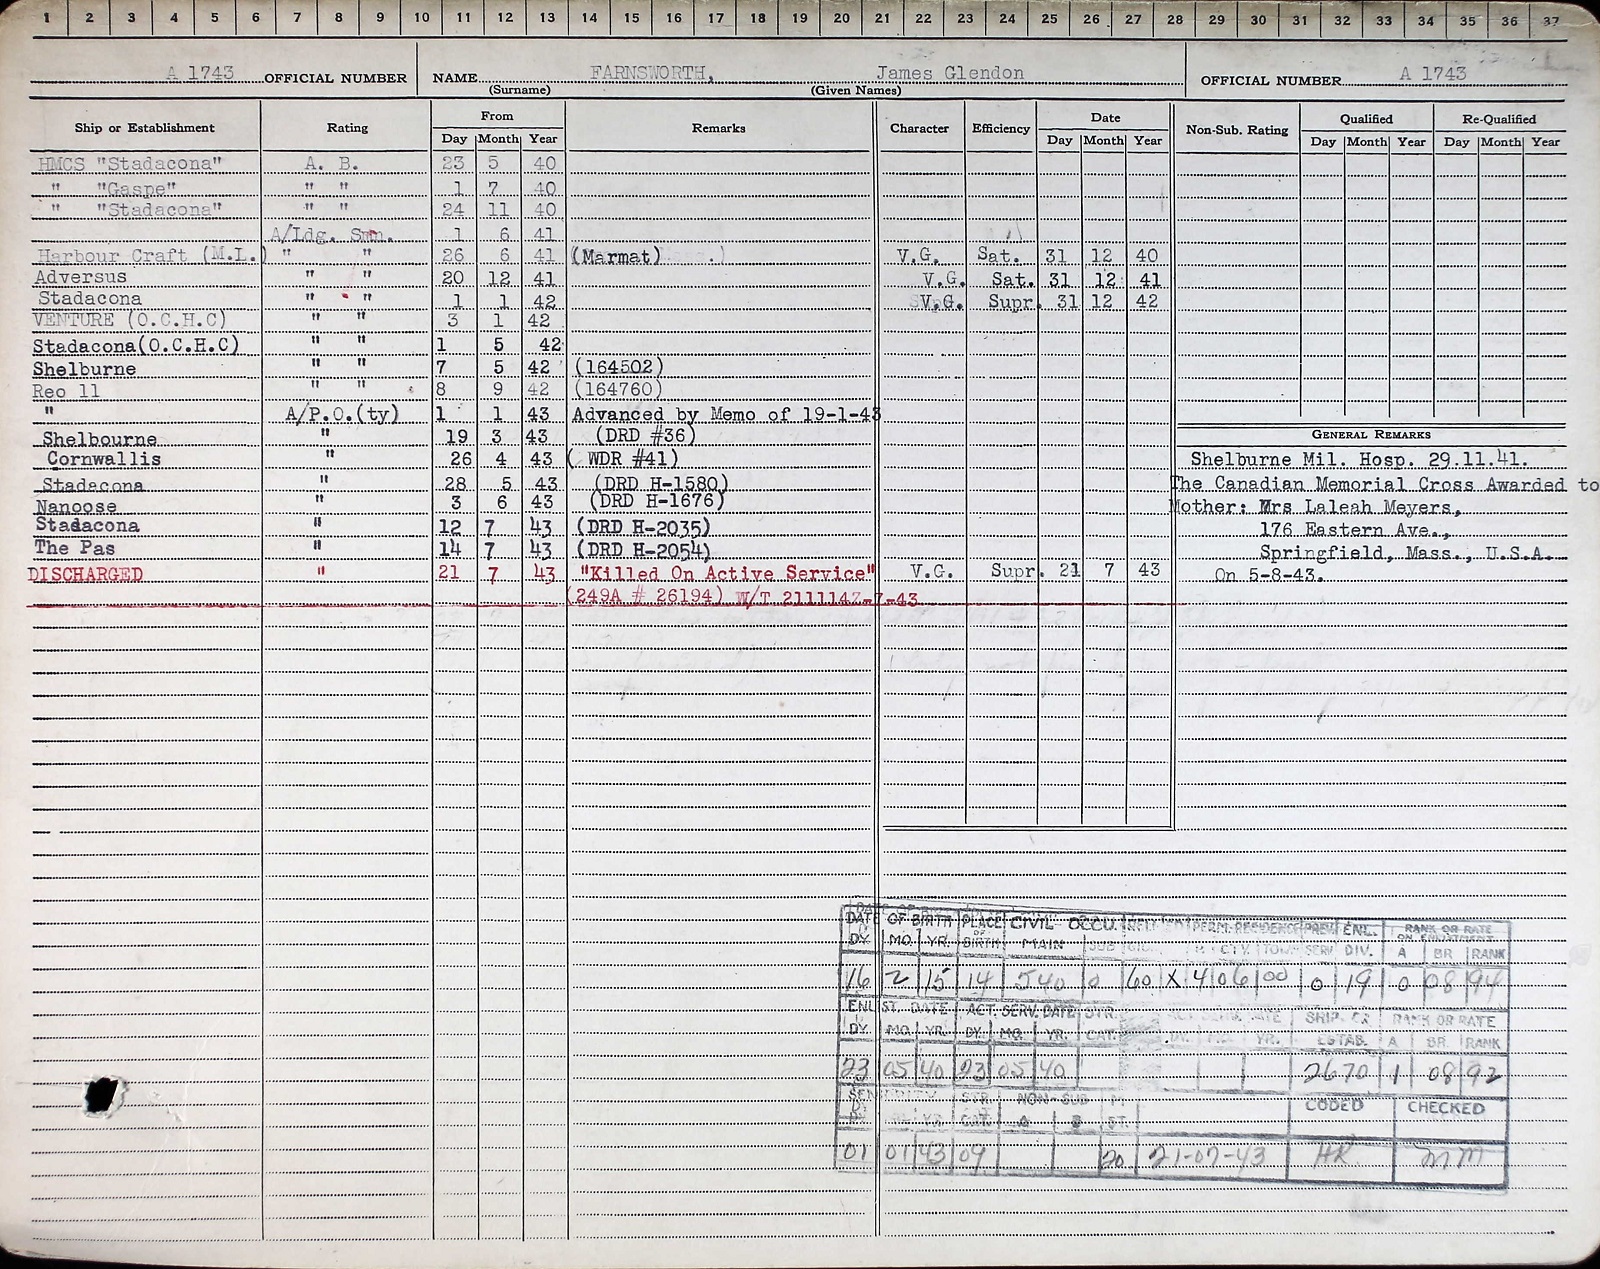 1 2 3 4 5 6 7 8 9 10 11 12 13 14 15 16 17 18 19 20 21 22 23 24 25 26 27 28 29 30 31 32 33 34 35 36 37
A 1743 OFFICIAL NUMBER NAME FARNSWORTH, James Glendon OFFICIAL NUMBER A 1743
(Surname) (Given Names)
Ship or Establishment Rating From Remarks Character Efficiency Date Non-Sub. Rating Qualified Re-Qualified
Day Month Year Day Month Year Day Month Year Day Month Year
HMCS "Stadacona" A. B. 23 5 40
" "Gaspe" " " 1 7 40
" "Stadacona" " " 24 11 40
A/Ldg. Smn. 1 6 41
Harbour Craft (M.L.) " " 26 6 41 (Marmat) V.G. Sat. 31 12 40
Adversus " " 20 12 41 V.G. Sat. 31 12 41
Stadacona " " 1 1 42 V.G. Supr. 31 12 42
VENTURE (O.C.H.C) " " 3 1 42
Stadacona(O.C.H.C) " " 1 5 42
Shelburne " " 7 5 42 (164502)
Reo 11 " " 8 9 42 (164760)
" A/P.O.(ty) 1 1 43 Advanced by Memo of 19-1-43
Shelbourne " 19 3 43 (DRD #36)
Cornwallis " 26 4 43 ( WDR #41)
Stadacona " 28 5 43 (DRD H-1580)
Nanoose " 3 6 43 (DRD H-1676)
Stadacona " 12 7 43 (DRD H-2035)
The Pas " 14 7 43 (DRD H-2054)
DISCHARGED " 21 7 43 "Killed On Active Service" V.G. Supr. 21 7 43
(249A # 26194) W/T 211114Z-7-43
GENERAL REMARKS
Shelburne Mil. Hosp. 29.11.41.
The Canadian Memorial Cross Awarded to
Mother: Mrs Laleah Meyers,
176 Eastern Ave.,
Springfield, Mass., U.S.A.
On 5-8-43.
DATE OF BIRTH PLACE OF BIRTH CIVIL OCCU. PERM. RESIDENCE PREV. SERV. ENL. DIV. RANK OR RATE ON ENLISTMENT
DY. MO. YR. MAIN SUB CTY. TOWN A BR RANK
16 2 15 14 540 0 60 X 4 06 00 0 19 0 08 94
ENLIST. DATE ACT. SERV. DATE STR. CAT. SHIP OR ESTAB. RANK OR RATE
DY. MO. YR. DY. MO. YR. YR. A BR. RANK
23 05 40 23 05 40 2670 1 08 92
SENIORITY STR. CAT. NON-SUB CODED CHECKED
YR. A B ST.
01 01 43 09 20 21-07-43 HR MM